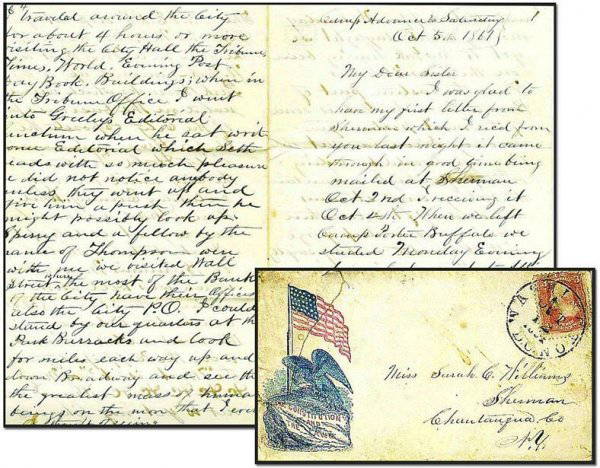 traveled around the City
for about 4 hours or more
visiting the City Hall the Tribune
Times, World, Evening Post
Day Book, Buildings; when in
the Tribune Office I went
into Greeleys Editorial
sanctum when he sat writ
one Editorial which Seth
reads with so much pleasure
e did not notice anybody
unless they went up and
give him a push then he
might possibly look up.
Spring and a fellow by the
name of Thompson were
with me we visited Wall
Street where the most of the Bank
of the City have their Offices
also the City P.O. I could
stand by our quarters at the
Park Barracks and look
for miles each way up and
down Broadway and see the
the greatest mass of human
beings on the move that I ever
Camp Advance Saturday
Oct 5th 1861
My Dear Sister
I was glad to
have my first letter from
Sherman which I recd from
you last night it came
through in good time being
mailed at Sherman
Oct 2nd I receiving it
Oct 4th. When we left
Camp Porter Buffalo we
started Monday Evening
CONSTITUTION
AND
THE
WASH
Miss Sarah C. Williams
Sherman
Chautauqua Co
N.Y.